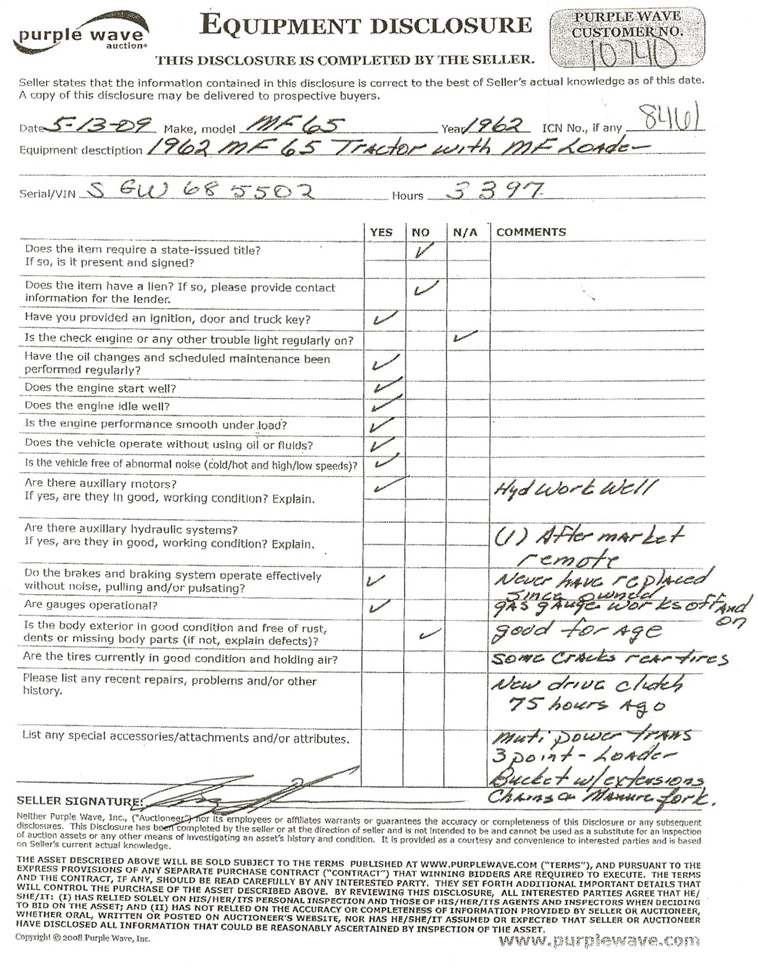 purple wave
auction
EQUIPMENT DISCLOSURE
THIS DISCLOSURE IS COMPLETED BY THE SELLER.
PURPLE WAVE
CUSTOMER NO.
10740
Seller states that the information contained in this disclosure is correct to the best of Seller's actual knowledge as of this date.
A copy of this disclosure may be delivered to prospective buyers.
Date 5-13-09 Make, model MF 65 Year 1962 ICN No., if any 8461
Equipment desctiption 1962 MF 65 Tractor with MF Loader
Serial/VIN S GW 685502 Hours 3397
YES NO N/A COMMENTS
Does the item require a state-issued title? ✓
If so, is it present and signed?
Does the item have a lien? If so, please provide contact ✓
information for the lender.
Have you provided an ignition, door and truck key? ✓
Is the check engine or any other trouble light regularly on? ✓
Have the oil changes and scheduled maintenance been
performed regularly? ✓
Does the engine start well? ✓
Does the engine idle well? ✓
Is the engine performance smooth under load? ✓
Does the vehicle operate without using oil or fluids? ✓
Is the vehicle free of abnormal noise (cold/hot and high/low speeds)? ✓
Are there auxillary motors? ✓ Hyd Work Well
If yes, are they in good, working condition? Explain.
Are there auxillary hydraulic systems? (1) After market
If yes, are they in good, working condition? Explain. remote
Do the brakes and braking system operate effectively ✓ Never have replaced
without noise, pulling and/or pulsating? since owned
Are gauges operational? ✓ gas gauge works off and on
Is the body exterior in good condition and free of rust, ✓ good for age
dents or missing body parts (if not, explain defects)?
Are the tires currently in good condition and holding air? Some cracks rear tires
Please list any recent repairs, problems and/or other New drive clutch
history. 75 hours ago
List any special accessories/attachments and/or attributes. Muti power trans
3 point - Loader
Bucket w/extensions
Chains & Manure fork.
SELLER SIGNATURE:
Neither Purple Wave, Inc., ("Auctioneer") nor its employees or affiliates warrants or guarantees the accuracy or completeness of this Disclosure or any subsequent
disclosures. This Disclosure has been completed by the seller or at the direction of seller and is not intended to and cannot be used as a substitute for an inspection
of auction assets or any other means of investigating an asset's history and condition. It is provided as a courtesy and convenience to interested parties and is based
on Seller's current actual knowledge.
THE ASSET DESCRIBED ABOVE WILL BE SOLD SUBJECT TO THE TERMS PUBLISHED AT WWW.PURPLEWAVE.COM ("TERMS"), AND PURSUANT TO THE
EXPRESS PROVISIONS OF ANY SEPARATE PURCHASE CONTRACT ("CONTRACT") THAT WINNING BIDDERS ARE REQUIRED TO EXECUTE. THE TERMS
AND THE CONTRACT, IF ANY, SHOULD BE READ CAREFULLY BY ANY INTERESTED PARTY. THEY SET FORTH ADDITIONAL IMPORTANT DETAILS THAT
WILL CONTROL THE PURCHASE OF THE ASSET DESCRIBED ABOVE. BY REVIEWING THIS DISCLOSURE, ALL INTERESTED PARTIES AGREE THAT HE/
SHE/IT: (I) HAS RELIED SOLELY ON HIS/HER/ITS PERSONAL INSPECTION AND THOSE OF HIS/HER/ITS AGENTS AND INSPECTORS WHEN DECIDING
TO BID ON THE ASSET; AND (II) HAS NOT RELIED ON THE ACCURACY OR COMPLETENESS OF INFORMATION PROVIDED BY SELLER OR AUCTIONEER,
WHETHER ORAL, WRITTEN OR POSTED ON AUCTIONEER'S WEBSITE, NOR HAS HE/SHE/IT ASSUMED OR EXPECTED THAT SELLER OR AUCTIONEER
HAVE DISCLOSED ALL INFORMATION THAT COULD BE REASONABLY ASCERTAINED BY INSPECTION OF THE ASSET.
Copyright © 2008 Purple Wave, Inc.
www.purplewave.com